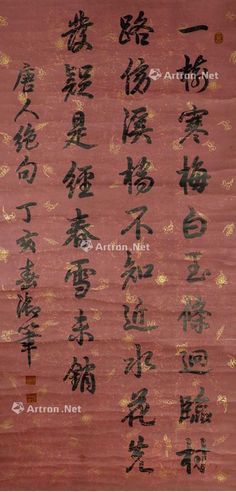 一樹寒梅白玉條迥臨村
路傍溪橋不知近水花先
發疑是經春雪未銷
唐人絕句 丁亥 筆
Artron.Net
Artron.Net
Artron.Net
Artron.Net
Artron.Net